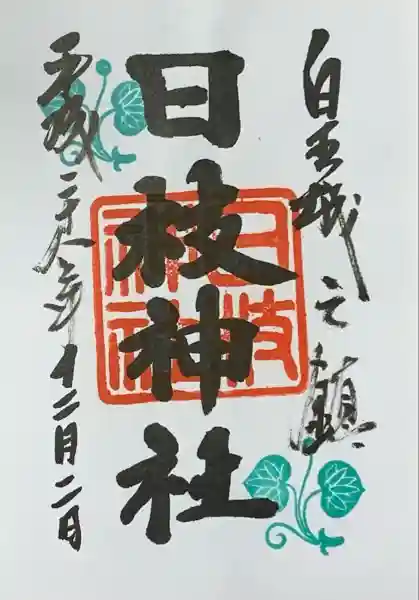 皇城之鎮
日枝神社
平成二十八年十二月二日
日枝
神社